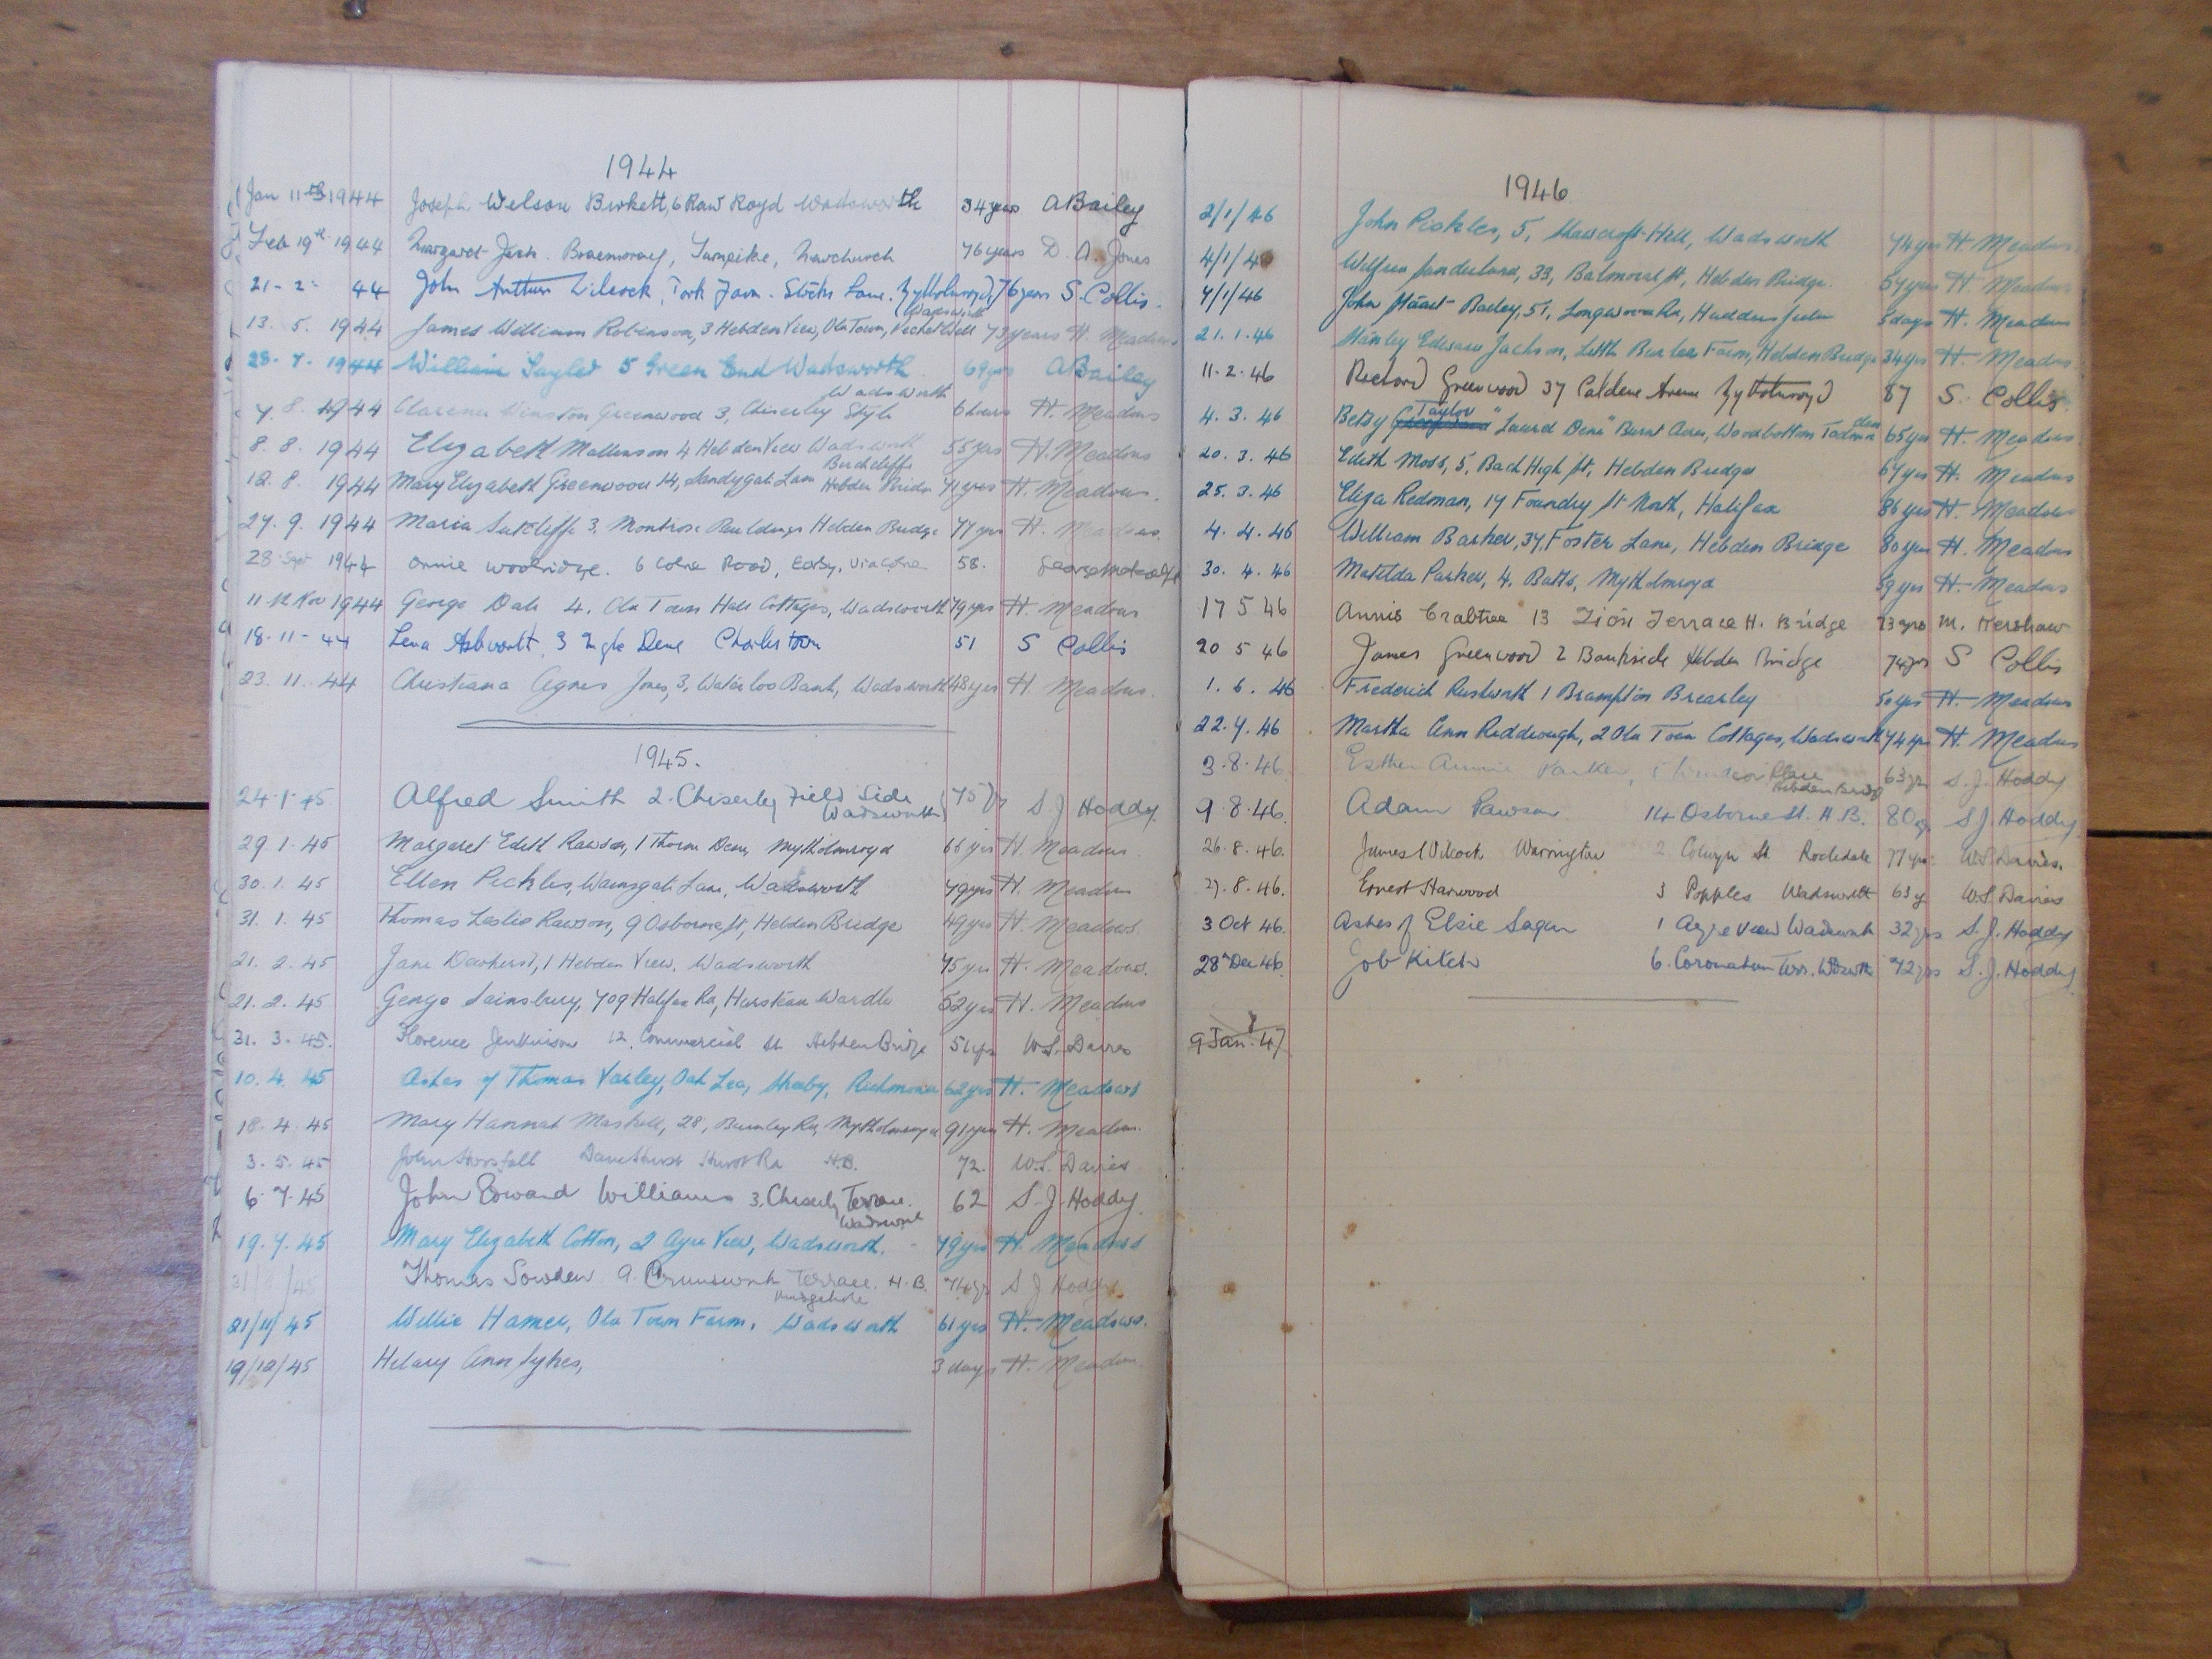 1944
Jan 11th 1944 Joseph Welson Birkett, 6 Raw Royd Wadsworth 34 years A Bailey
Feb 19th 1944 Margaret Jash. Braemoray, Turnpike, Newchurch 76 years D. A. Jones
21 - 2 - 44 John Arthur Wilcock, York Farm. Stocks Lane. Mytholmroyd, 76 years S. Collis.
Wadsworth
13. 5. 1944 James William Robinson, 3 Hebden View, Old Town, Pecket Well 73 years H. Meadows
23. 7. 1944 William Taylor 5 Green End Wadsworth 69 yrs A Bailey
Wadsworth
7. 8. 1944 Clarence Winston Greenwood 3, Chiserley Style 6 hours H. Meadows
8. 8. 1944 Elizabeth Mallinson 4 Hebden View Wadsworth 55 yrs H. Meadows
Birchcliffe
12. 8. 1944 Mary Elizabeth Greenwood 14, Sandygate Lane Hebden Bridge 71 yrs H. Meadows.
27. 9. 1944 Maria Sutcliffe 3, Montrose Buildings Hebden Bridge 77 yrs H. Meadows.
28 Sept 1944 Annie Woolridge. 6 Colne Road, Earby, Via Colne 58. George Metcalfe
11th Nov 1944 George Dale 4. Old Town Hall Cottages, Wadsworth 79 yrs H. Meadows
18 - 11 - 44 Lena Ashworth 3 Ingle Dene Charlestown 51 S Collis
23. 11. 44 Christiana Agnes Jones, 3, Waterloo Bank, Wadsworth 48 yrs H. Meadows.
1945.
24. 1. 45 Alfred Smith 2. Chiserley Field Side 75 yrs S. J Hoddy
Wadsworth
29. 1. 45 Margaret Edith Rawson, 1 Thorn Dene, Mytholmroyd 66 yrs H. Meadows.
30. 1. 45 Ellen Pickles, Wainsgate Lane, Wadsworth 79 yrs H. Meadows
31. 1. 45 Thomas Leslie Rawson, 9 Osborne St, Hebden Bridge 49 yrs H. Meadows.
21. 2. 45 Jane Dewhirst, 1 Hebden View. Wadsworth 75 yrs H. Meadows.
21. 2. 45 George Sainsbury, 709 Halifax Rd, Hurstead Wardle 52 yrs H. Meadows
31. 3. 45. Florence Jenkinson 12, Commercial St Hebden Bridge 51 yrs W. S. Davies
10. 4. 45 Ashes of Thomas Varley, Oak Lea, Skeeby, Richmond 62 yrs H. Meadows
18. 4. 45 Mary Hannah Maskell, 28, Burnley Rd, Mytholmroyd 91 yrs H. Meadows.
3. 5. 45 John Horsfall Hurst Rd H.B. 72. W. S. Davies
6. 7. 45 John Edward Williams 3. Chiserley Terrace. 62 S. J. Hoddy.
Wadsworth
19. 7. 45 Mary Elizabeth Cotton, 2 Ayre View, Wadsworth. 79 yrs H. Meadows
/45 Thomas Sowden 9. Brunswick Terrace. H.B. 74 yrs S J Hoddy.
Midgehole
21/11/45 Willie Hamer, Old Town Farm, Wadsworth 61 yrs H. Meadows.
19/12/45 Hilary Ann Sykes, 3 days H. Meadows
1946
2/1/46 John Pickles, 5, Shawcroft Hill, Wadsworth 74 yrs H. Meadows.
4/1/4 Wilfred Sunderland, 33, Balmoral St, Hebden Bridge. 54 yrs H. Meadows
7/1/46 John Stuart Bailey, 51, Longwood Rd, Huddersfield 5 days H. Meadows
21. 1. 46 Stanley Edward Jackson, Little Burlees Farm, Hebden Bridge 34 yrs H. Meadows.
11. 2. 46 Richard Greenwood 37 Caldene Avenue Mytholmroyd 87 S. Collis.
Taylor
4. 3. 46 Betsy Greenwood "Laurel Dene" Burnt Acres, Woodbottom Todmorden 65 yrs H. Meadows.
20. 3. 46 Edith Moss, 5, Back High St, Hebden Bridge 67 yrs H. Meadows
25. 3. 46 Eliza Redman, 17 Foundry St North, Halifax 86 yrs H. Meadows
4. 4. 46 William Barker, 37, Foster Lane, Hebden Bridge 80 yrs H. Meadows
30. 4. 46 Matilda Parker, 4. Batts, Mytholmroyd 59 yrs H. Meadows
17 5 46 Annis Crabtree 13 Zion Terrace H. Bridge 73 yrs M. Hershaw
20 5 46 James Greenwood 2 Bankside Hebden Bridge 74 yrs S Collis
1. 6. 46 Frederick Rushworth 1 Brampton Brearley 50 yrs H. Meadows
22. 7. 46 Martha Ann Riddiough, 2 Old Town Cottages, Wadsworth 74 yrs H. Meadows
3. 8. 46. Esther Annie Parker, Windsor Place 63 yrs S. J. Hoddy
Hebden Bridge
9. 8. 46. Adam Pawson 14 Osborne St. H.B. 80 yrs S J. Hoddy.
26. 8. 46. James Wilcock Warrington 2 Colwyn St Rochdale 77 yrs W. S. Davies.
27. 8. 46. Ernest Harwood 3 Popples Wadsworth 63 y W. S. Davies
3 Oct 46. Ashes of Elsie Sagar 1 Ayre View Wadsworth 32 yrs S. J. Hoddy
28th Dec 46 Job Kitch 6. Coronation Terr. Wdswth 72 yrs S. J. Hoddy
9 Jan. 47